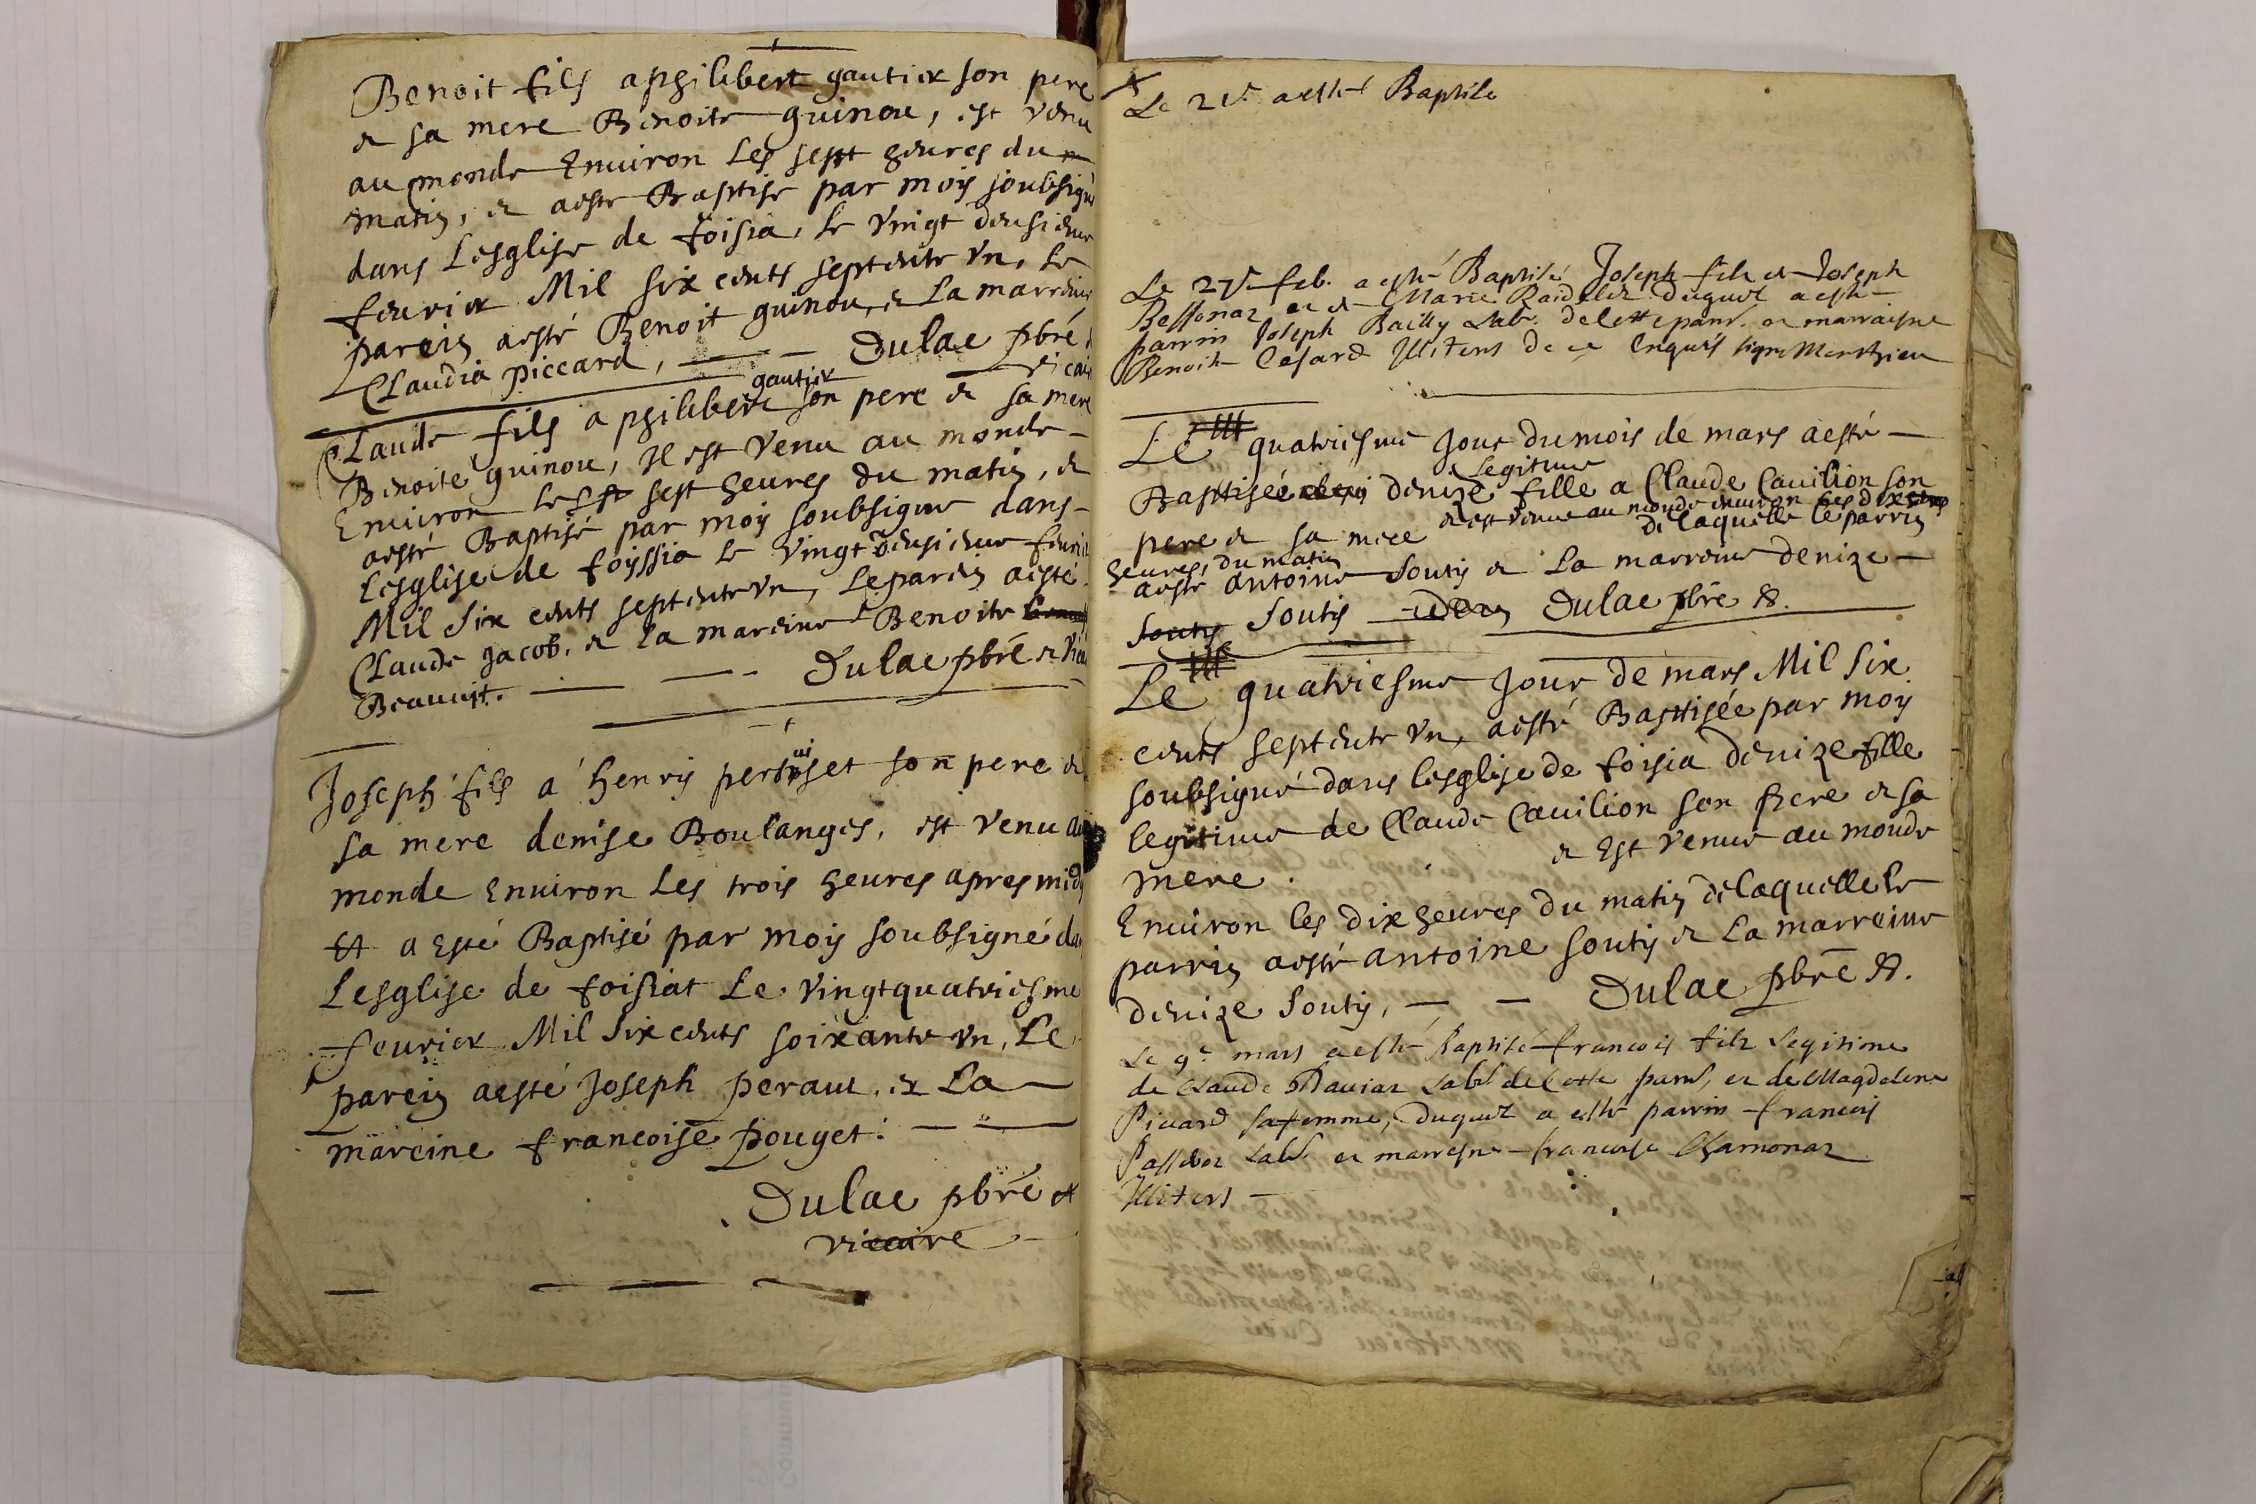 Benoit fils a philibert gautier son pere
& sa mere Benoite guinou, est venu
au monde Environ les sept heures du
matin, & aesté Baptisé par moy soubsigné
dans Lesglise de foisia, le vingt deusieme
feurier Mil six cents septente vn, le
parein aesté Benoit guinou, & La mareine
Claudia piccard, — — Dulac pbré &
vicai
gautier
Claude fils a philibert son pere & sa mere
Benoite guinou, Il est venu au monde —
Enuiron les sept heures du matin, &
aesté Baptisé par moy soubsigne dans
Lesglise de foyssia le vingt deusieme feurier
Mil six cents septente vn, Le parein aesté
Claude jacob, & la mareine Benoite
Beauuit. — — Dulac pbré & vica
Joseph fils a henry pertuiset son pere &
sa mere denise Boulanges, est venu au
monde Enuiron les trois heures apres midy
Et a Esté Baptisé par moy soubsigné da
Lesglise de foisiat Le vingtquatriesme
feurier Mil six cents soixante vn, Le
parein aesté Joseph peraut, & La —
mareine francoise pouget: — —
Dulac pbré et
vicaire
Le 21e a esté Baptisé
Le 27e feb. a esté Baptisé Joseph fils de Joseph
Bessonaz et de Marie duquel a esté
parrin Joseph Bailly Lab. de cette parr. et marraisne
Benoite Cesard Illiterés de ce Enquis signé Monthieu
Le quatriesme jour du mois de mars aesté —
Legitime
Baptisée denize fille a Claude Cauilion son
& est venue au monde enuiron les dix
pere & sa mere de laquelle le parrin
heures du matin
aesté antoine souty & La marreine denize —
souty soutis — Dulac pbré &.
Le quatriesme jour de mars Mil six
cents septente vn, aesté Baptisée par moy
soubsigné dans lesglise de foisia denize fille
legitime de Claude Cauilion son pere & sa
mere . & Est venue au monde
Enuiron les dix heures du matin de laquelle le
parrin aesté antoine souty & La marreine
denize souty, — — Dulac pbré &.
Le 9e mars a esté Baptisé francois filz Legitime
de Claude Rauiaz Labr de cette parr, et de Magdelene
Picard sa femme, duquel a esté parrin francois
Labr et marresne francoise Chamonaz
Illiterés —